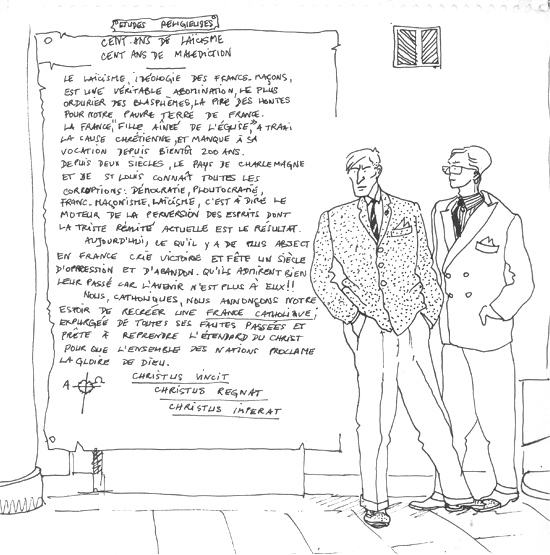 ETUDES RELIGIEUSES
CENT ANS DE LAÏCISME
CENT ANS DE MALEDICTION
LE LAÏCISME, IDÉOLOGIE DES FRANCS-MAÇONS,
EST UNE VÉRITABLE ABOMINATION, LE PLUS
ORDURIER DES BLASPHÈMES, LA PIRE DES HONTES
POUR NOTRE PAUVRE TERRE DE FRANCE.
LA FRANCE, "FILLE AINÉE DE L'ÉGLISE," A TRAHI
LA CAUSE CHRÉTIENNE, ET MANQUE À SA
VOCATION DEPUIS BIENTÔT 200 ANS.
DEPUIS DEUX SIÈCLES, LE PAYS DE CHARLEMAGNE
ET DE ST LOUIS CONNAÎT TOUTES LES
CORRUPTIONS: DÉMOCRATIE, PLOUTOCRATIE,
FRANC-MAÇONISME, LAÏCISME, C'EST À DIRE LE
MOTEUR DE LA PERVERSION DES ESPRITS DONT
LA TRISTE RÉALITÉ ACTUELLE EST LE RÉSULTAT.
AUJOURD'HUI, CE QU'IL Y A DE PLUS ABJECT
EN FRANCE CRIE VICTOIRE ET FÊTE UN SIÈCLE
D'OPPRESSION ET D'ABANDON. QU'ILS ADMIRENT BIEN
LEUR PASSÉ CAR L'AVENIR N'EST PLUS À EUX!!
NOUS, CATHOLIQUES, NOUS ANNONÇONS NOTRE
ESPOIR DE RECRÉER UNE FRANCE CATHOLIQUE,
EXPURGÉE DE TOUTES SES FAUTES PASSÉES ET
PRÊTE À REPRENDRE L'ÉTENDARD DU CHRIST
POUR QUE L'ENSEMBLE DES NATIONS PROCLAME
LA GLOIRE DE DIEU.
A Ω
CHRISTUS VINCIT
CHRISTUS REGNAT
CHRISTUS IMPERAT